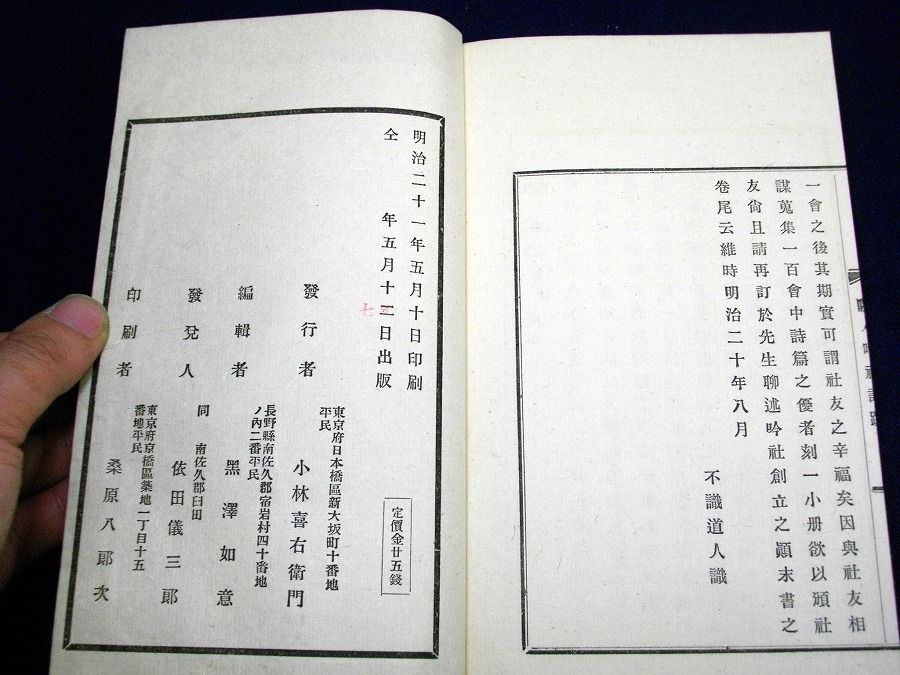 一會之後其期實可謂社友之幸福矣因與社友相
謀蒐集一百會中詩篇之優者刻一小册欲以頒社
友尙且請再訂於先生聊述吟社創立之顚末書之
卷尾云維時明治二十年八月
不識道人識
明治二十一年五月十日印刷
仝 年五月十二日出版
七
定價金廿五錢
發行者
東京府日本橋區新大坂町十番地
平民
小林喜右衛門
編輯者
長野縣南佐久郡宿岩村四十番地
ノ內二番平民
黑澤如意
發兌人
同 南佐久郡臼田
依田儀三郞
印刷者
東京府京橋區築地一丁目十五
番地平民
桑原八郞次